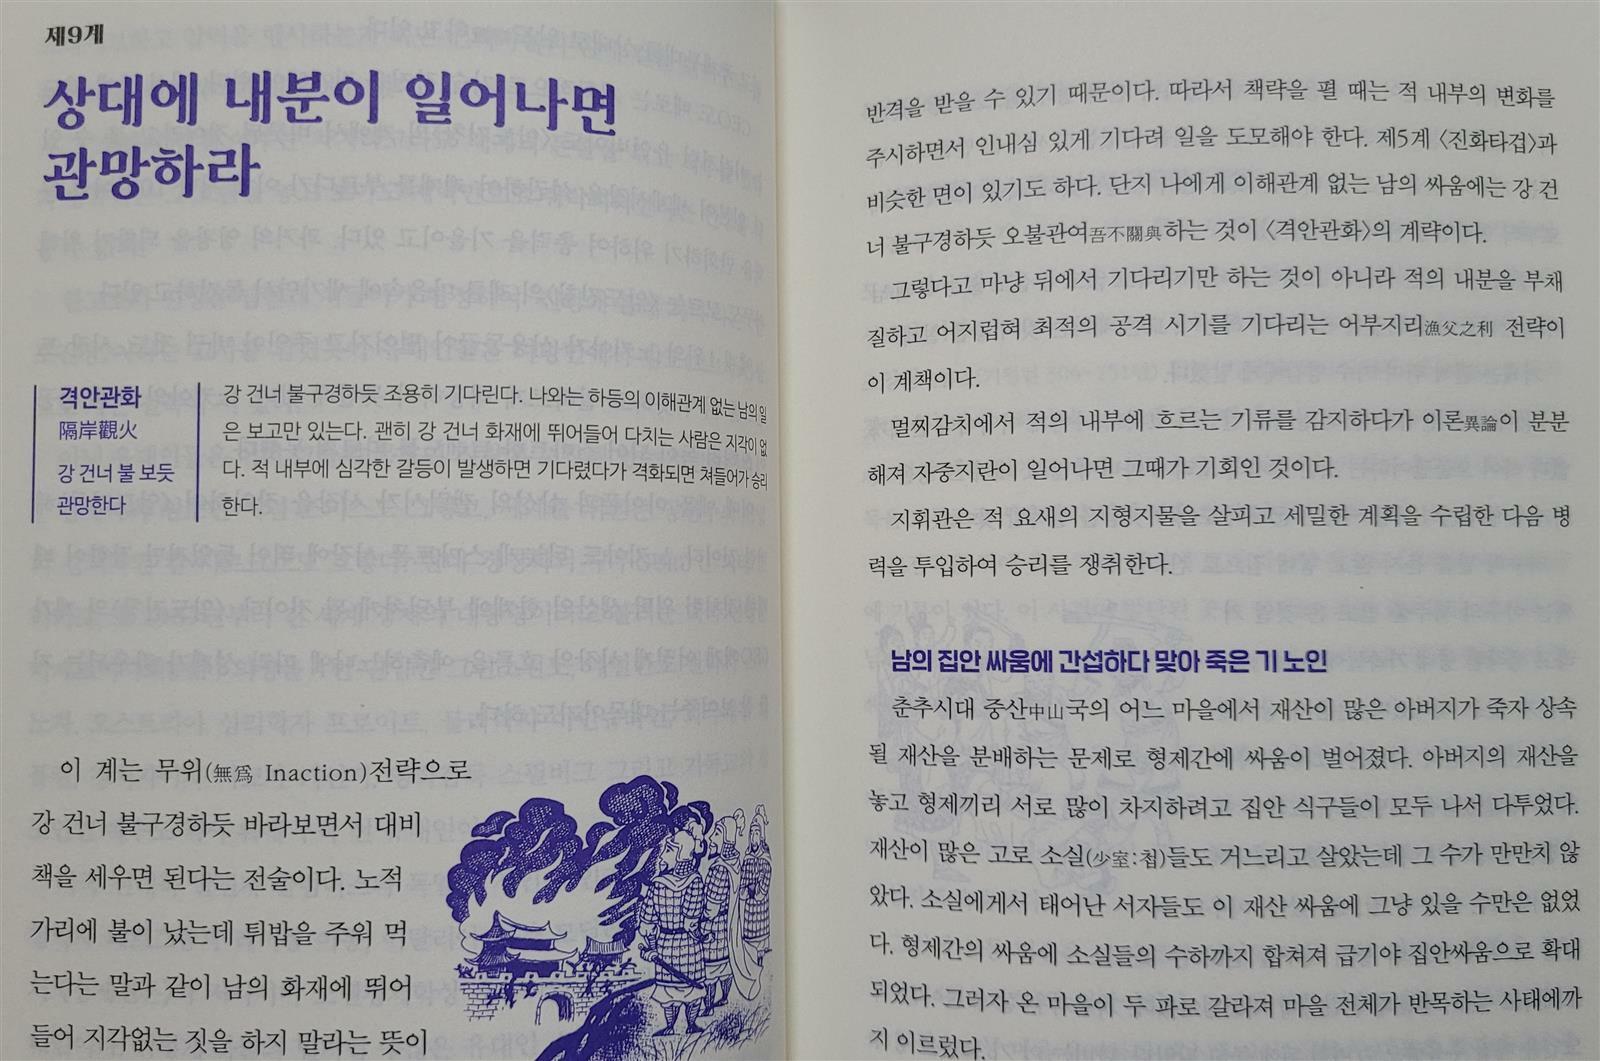 제9계
상대에 내분이 일어나면
관망하라
격안관화
隔岸觀火
강 건너 불 보듯
관망한다
강 건너 불구경하듯 조용히 기다린다. 나와는 하등의 이해관계 없는 남의 일
은 보고만 있는다. 괜히 강 건너 화재에 뛰어들어 다치는 사람은 지각이 없
다. 적 내부에 심각한 갈등이 발생하면 기다렸다가 격화되면 쳐들어가 승리
한다.
이 계는 무위(無爲 Inaction)전략으로
강 건너 불구경하듯 바라보면서 대비
책을 세우면 된다는 전술이다. 노적
가리에 불이 났는데 튀밥을 주워 먹
는다는 말과 같이 남의 화재에 뛰어
들어 지각없는 짓을 하지 말라는 뜻이
반격을 받을 수 있기 때문이다. 따라서 책략을 펼 때는 적 내부의 변화를
주시하면서 인내심 있게 기다려 일을 도모해야 한다. 제5계 〈진화타겁〉과
비슷한 면이 있기도 하다. 단지 나에게 이해관계 없는 남의 싸움에는 강 건
너 불구경하듯 오불관여吾不關與하는 것이 〈격안관화〉의 계략이다.
그렇다고 마냥 뒤에서 기다리기만 하는 것이 아니라 적의 내분을 부채
질하고 어지럽혀 최적의 공격 시기를 기다리는 어부지리漁父之利 전략이
이 계책이다.
멀찌감치에서 적의 내부에 흐르는 기류를 감지하다가 이론異論이 분분
해져 자중지란이 일어나면 그때가 기회인 것이다.
지휘관은 적 요새의 지형지물을 살피고 세밀한 계획을 수립한 다음 병
력을 투입하여 승리를 쟁취한다.
남의 집안 싸움에 간섭하다 맞아 죽은 기 노인
춘추시대 중산中山국의 어느 마을에서 재산이 많은 아버지가 죽자 상속
될 재산을 분배하는 문제로 형제간에 싸움이 벌어졌다. 아버지의 재산을
놓고 형제끼리 서로 많이 차지하려고 집안 식구들이 모두 나서 다투었다.
재산이 많은 고로 소실(少室:첩)들도 거느리고 살았는데 그 수가 만만치 않
았다. 소실에게서 태어난 서자들도 이 재산 싸움에 그냥 있을 수만은 없었
다. 형제간의 싸움에 소실들의 수하까지 합쳐져 급기야 집안싸움으로 확대
되었다. 그러자 온 마을이 두 파로 갈라져 마을 전체가 반목하는 사태에까
지 이르렀다.